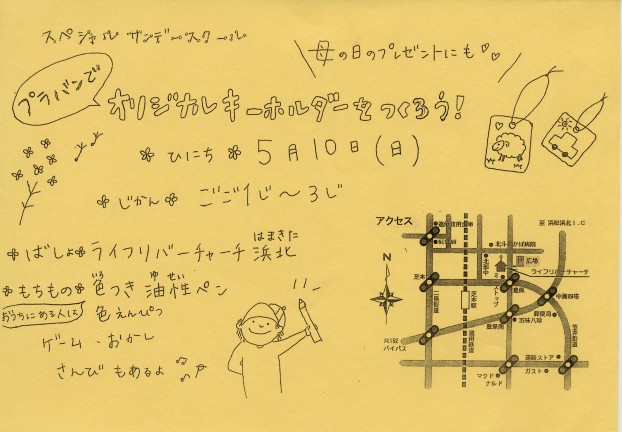 スペシャル サンデースクール
母の日のプレゼントにも
プラバンで
オリジナルキーホルダーをつくろう!
ひにち 5月10日(日)
じかん ごご1じ〜3じ
ばしょ ライフリバーチャーチ 浜北 はまきた
もちもの 色つき 油性ペン いろ ゆせい
おうちにある人は 色えんぴつ
ゲーム・おかし
さんびもあるよ
アクセス
至 浜松浜北I.C
NISSAN
北斗わかば病院
広場
ライフリバーチャーチ
N
芝本
芝本駅
中瀬四塔
郵便局
五味八珍
R152
バイパス
遠鉄ストア
マクド
ナルド
ガスト